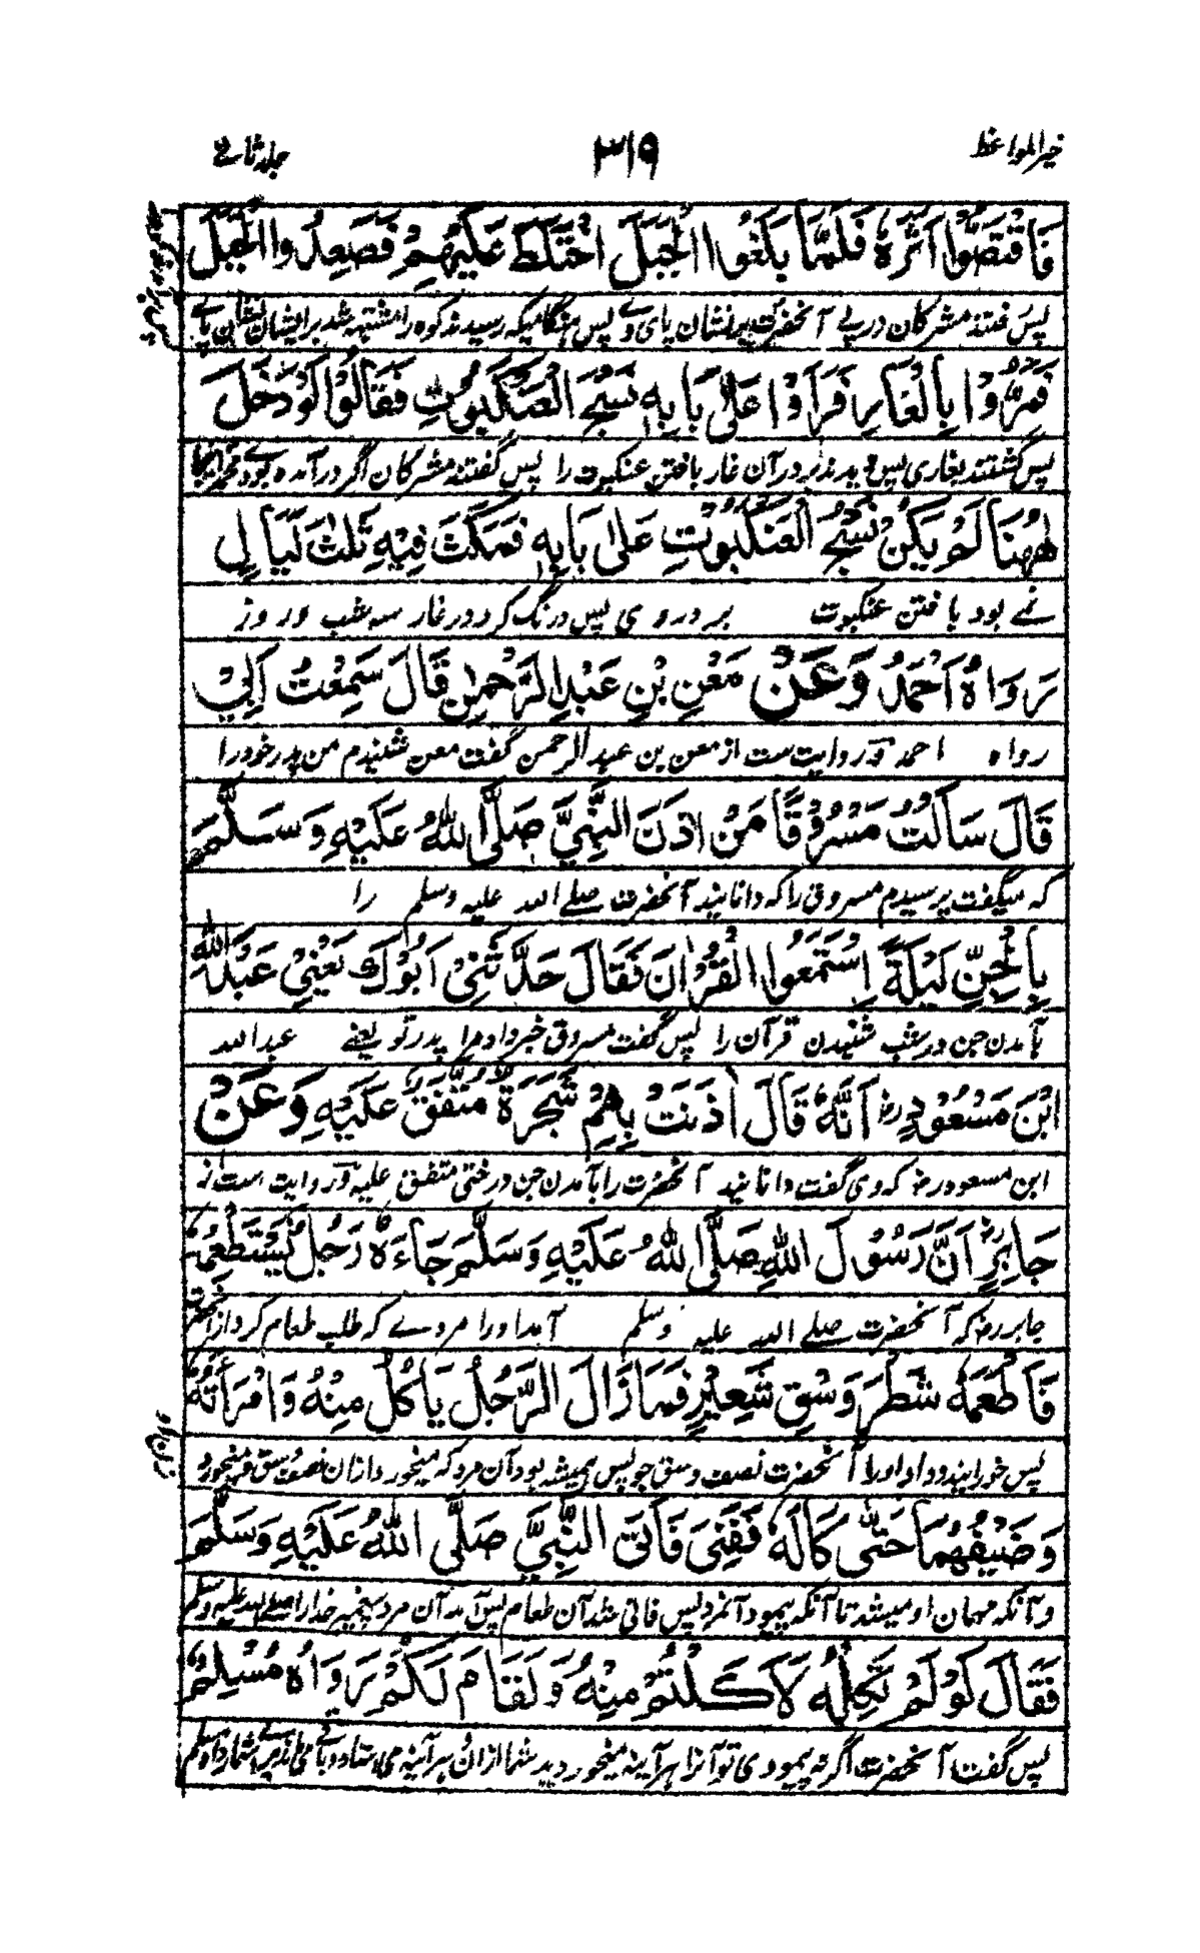 خیر المواعظ ۳۱۹ جلد ثانی
فَاقْتَصُّوا اَثَرَهٗ فَلَمَّا بَلَغُوا الْجَبَلَ اخْتَلَطَ عَلَيْهِمْ فَصَعِدُوا الْجَبَلَ
پس رفتند مشرکان در پے آنحضرت بر نشان پای وے پس ہنگامیکہ رسیدند کوہ را مشتبہ شد بر ایشان نشان پاے
فَمَرُّوْا بِالْغَارِ فَرَاَوْا عَلٰى بَابِهٖ نَسْجَ الْعَنْكَبُوْتِ فَقَالُوْا لَوْ دَخَلَ
پس گشتند بغاری پس دیدند بر در آن غار بافتن عنکبوت را پس گفتند مشرکان اگر درآمده بودے
هٰهُنَا لَمْ يَكُنْ نَسْجُ الْعَنْكَبُوْتِ عَلٰى بَابِهٖ فَمَكَثَ فِيْهِ ثَلٰثَ لَيَالٍ
نمے بود بافتن عنکبوت بر در وی پس درنگ کرد در غار سہ شب و روز
رَوَاهُ اَحْمَدُ وَعَنْ مَعْنِ بْنِ عَبْدِ الرَّحْمٰنِ قَالَ سَمِعْتُ اَبِيْ
رواه احمد و روایت ست از معن بن عبدالرحمن گفت معن شنیدم من پدر خود را
قَالَ سَاَلْتُ مَسْرُوْقًا مَنْ اٰذَنَ النَّبِيَّ صَلَّى اللّٰهُ عَلَيْهِ وَسَلَّمَ
کہ میگفت پرسیدم مسروق را کہ دانانید آنحضرت صلے اللہ علیہ وسلم را
بِالْجِنِّ لَيْلَةَ اسْتَمَعُوا الْقُرْاٰنَ فَقَالَ حَدَّثَنِيْ اَبُوْكَ يَعْنِيْ عَبْدَ اللّٰهِ
بآمدن جن در شب شنیدن قرآن را پس گفت مسروق خبر داد مرا پدر تو یعنے عبداللہ
ابْنَ مَسْعُوْدٍ رض اَنَّهٗ قَالَ اٰذَنَتْ بِهِمْ شَجَرَةٌ مُتَّفَقٌ عَلَيْهِ وَعَنْ
ابن مسعود رض کہ وی گفت دانانید آنحضرت را بآمدن جن درختی متفق علیہ و روایت ست از
جَابِرٍ رض اَنَّ رَسُوْلَ اللّٰهِ صَلَّى اللّٰهُ عَلَيْهِ وَسَلَّمَ جَاءَهٗ رَجُلٌ يَسْتَطْعِمُهٗ
جابر رض کہ آنحضرت صلے اللہ علیہ وسلم آمد او را مردے کہ طلب طعام کرد از آنحضرت
فَاَطْعَمَهٗ شَطْرَ وَسْقِ شَعِيْرٍ فَمَا زَالَ الرَّجُلُ يَاْكُلُ مِنْهُ وَامْرَاَتُهٗ
پس خورانید و داد او را آنحضرت نصف وسق جو پس ہمیشہ بود آن مرد کہ میخورد ازان نصف وسق
وَضَيْفُهُمَا حَتّٰى كَالَهٗ فَفَنِيَ فَاَتَى النَّبِيَّ صَلَّى اللّٰهُ عَلَيْهِ وَسَلَّمَ
و آنکہ مہمان او میشد تا آنکہ پیمود آنمرد پس فانی شد آن طعام پس آمد آن مرد پیغمبر خدا را صلے اللہ علیہ وسلم
فَقَالَ لَوْ لَمْ تَكِلْهُ لَاَكَلْتُمْ مِنْهُ وَلَقَامَ لَكُمْ رَوَاهُ مُسْلِمٌ
پس گفت آنحضرت اگر نہ پیمودی تو آنرا ہر آینہ میخوردید شما ازان